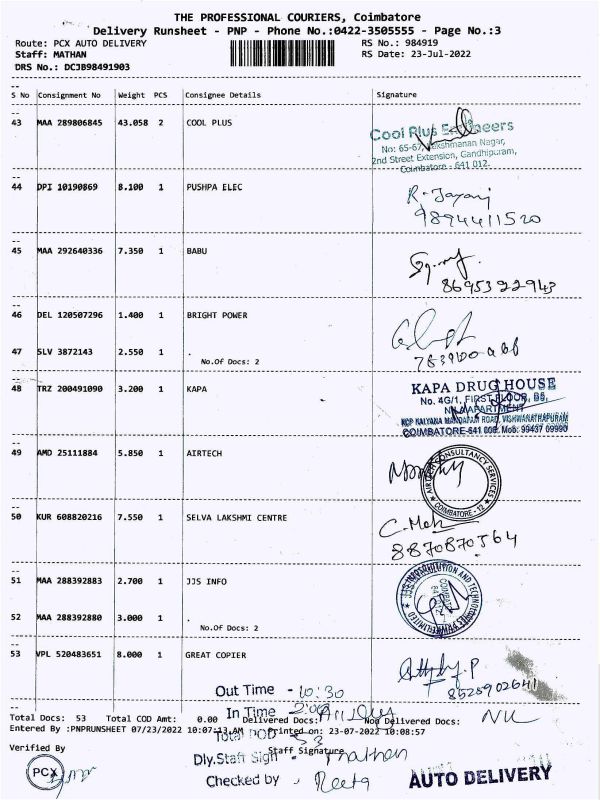 THE PROFESSIONAL COURIERS, Coimbatore
Delivery Runsheet - PNP - Phone No.:0422-3505555 - Page No.:3
Route: PCX AUTO DELIVERY RS No.: 984919
Staff: MATHAN RS Date: 23-Jul-2022
DRS No.: DCJB98491903
S No Consignment No Weight PCS Consignee Details Signature
43 MAA 289806845 43.058 2 COOL PLUS
Cool Plus Engineers
No: 65-67, Lakshmanan Nagar,
2nd Street Extension, Gandhipuram,
Coimbatore - 641 012.
44 DPI 10190869 8.100 1 PUSHPA ELEC
9894411520
45 MAA 292640336 7.350 1 BABU
8695322943
46 DEL 120507296 1.400 1 BRIGHT POWER
47 SLV 3872143 2.550 1 .
No.Of Docs: 2
48 TRZ 200491090 3.200 1 KAPA
KAPA DRUG HOUSE
No. 4G/1, FIRST FLOOR, B5,
APARTMENT
KALYANA MANDAPAM ROAD, VISHWANATHAPURAM
COIMBATORE-641 008. Mob: 99437 09990
49 AMD 25111884 5.850 1 AIRTECH
AIRTECH CONSULTANCY SERVICES
COIMBATORE - 12
50 KUR 608820216 7.550 1 SELVA LAKSHMI CENTRE
8870870564
51 MAA 288392883 2.700 1 JJS INFO
52 MAA 288392880 3.000 1 .
No.Of Docs: 2
53 VPL 520483651 8.000 1 GREAT COPIER
8528902641
Out Time - 10:30
In Time
Total Docs: 53 Total COD Amt: 0.00 Delivered Docs: Non Delivered Docs: Nil
Entered By :PNPRUNSHEET 07/23/2022 10:07:13 AM Printed on: 23-07-2022 10:08:57
Total POD 53
Verified By Staff Signature
Dly.Staff Sign - Mathan
PCX
Checked by - Reeta
AUTO DELIVERY